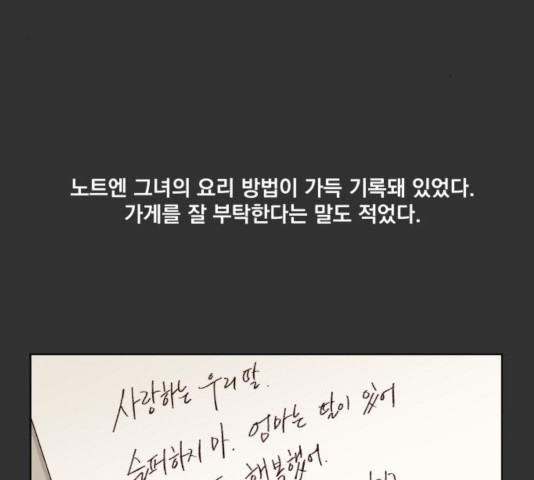 노트엔 그녀의 요리 방법이 가득 기록돼 있었다.
가게를 잘 부탁한다는 말도 적었다.
사랑하는 우리 딸.
슬퍼하지 마. 엄마는 딸이 있어
행복했어.